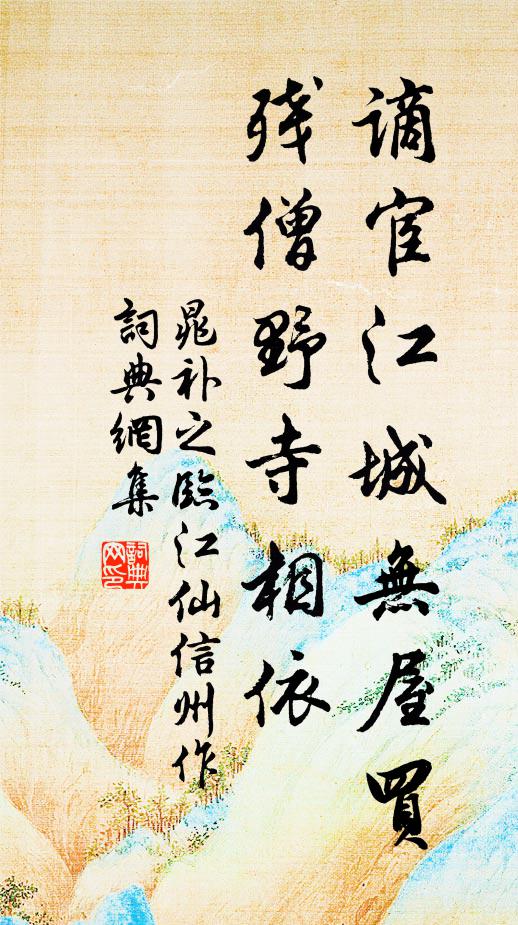 謫宦江城無屋買
残僧野寺相依
晁补之臨江仙信州作
詞典網集
詞典网印